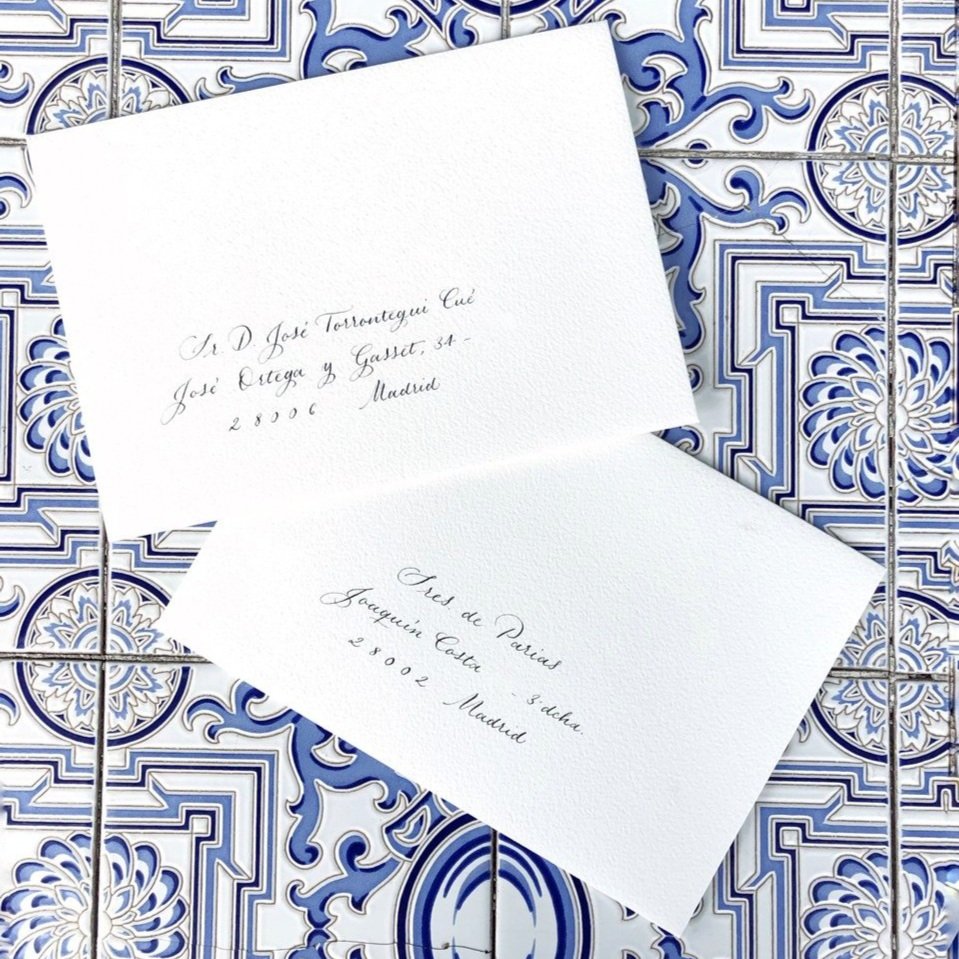 Sr. D. José Torrontegui Cué
José Ortega y Gasset, 34 -
28006 Madrid
Sres. de Parias
Joaquín Costa - 3º dcha.
28002 Madrid